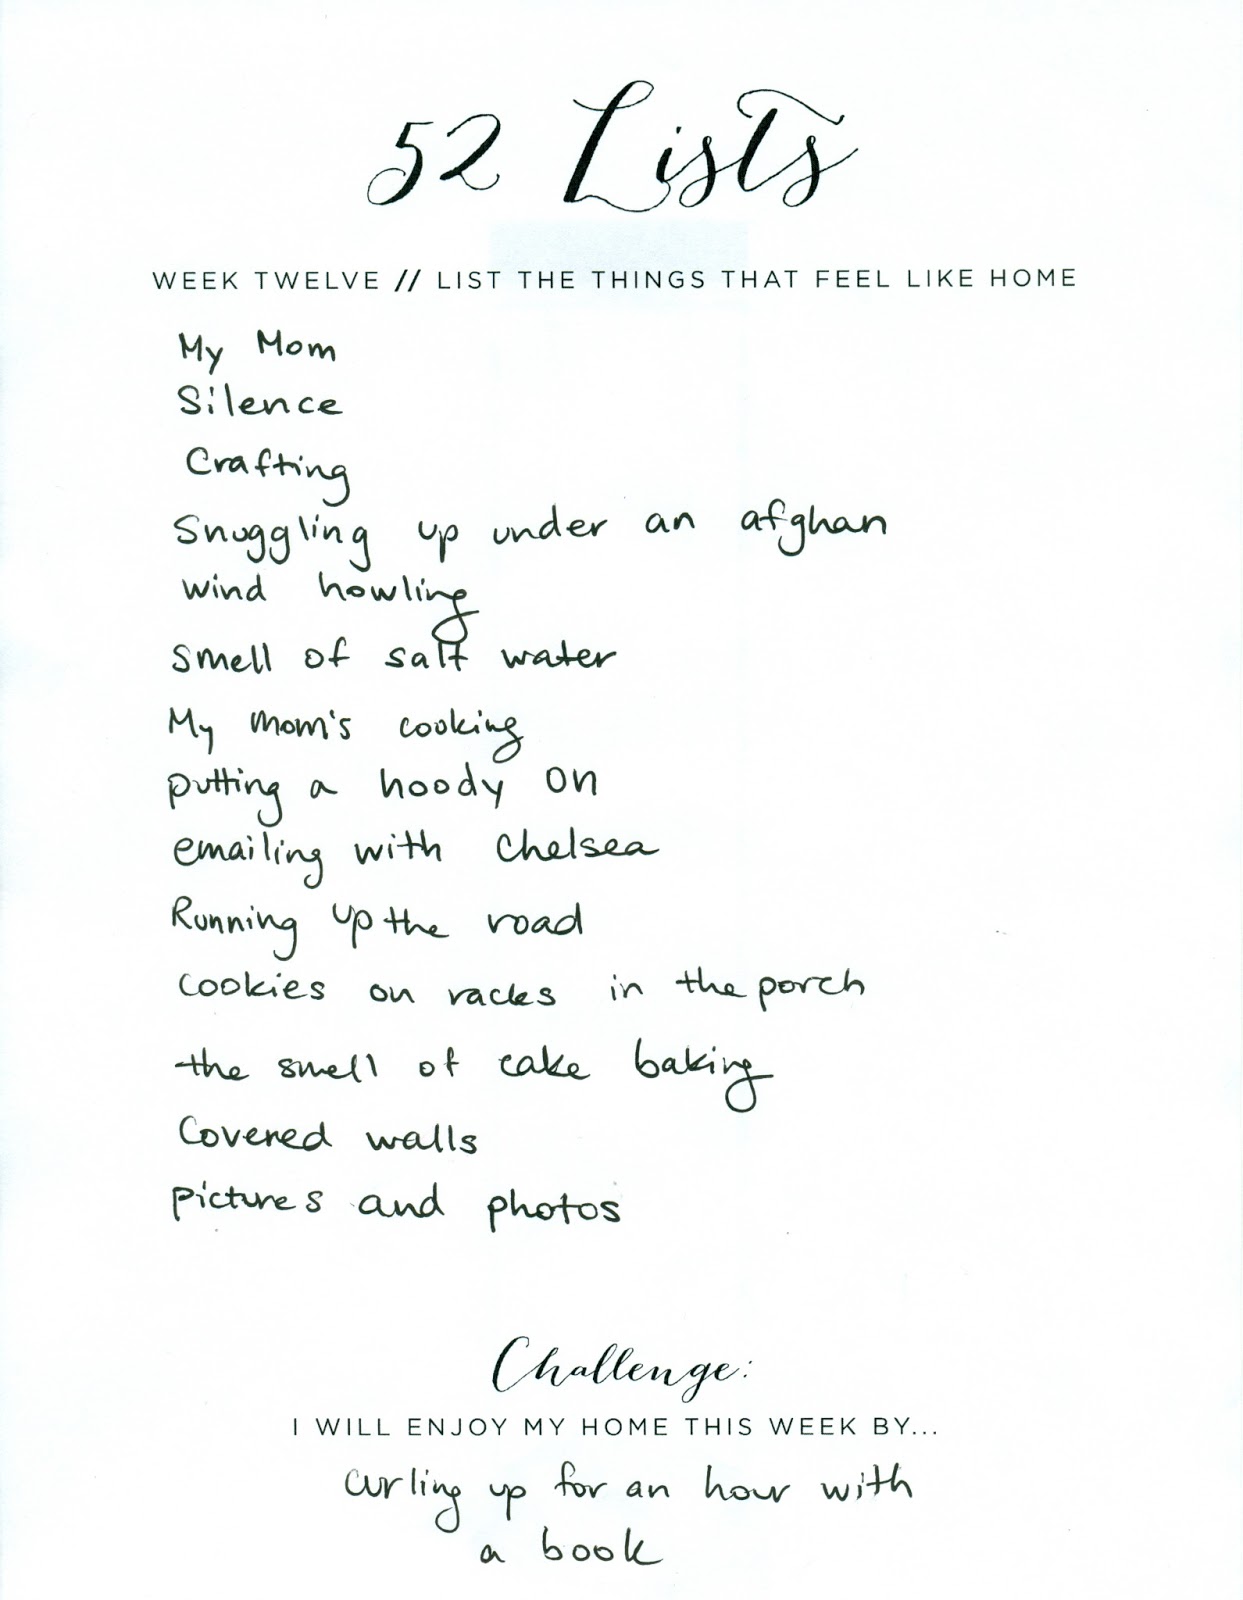 52 Lists
WEEK TWELVE // LIST THE THINGS THAT FEEL LIKE HOME
My Mom
Silence
Crafting
Snuggling up under an afghan
wind howling
smell of salt water
My mom's cooking
putting a hoody on
emailing with Chelsea
Running up the road
cookies on racks in the porch
the smell of cake baking
Covered walls
pictures and photos
Challenge:
I WILL ENJOY MY HOME THIS WEEK BY...
curling up for an hour with
a book